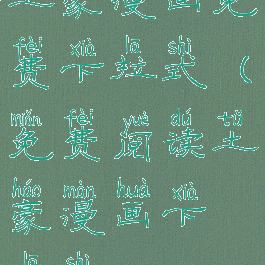 豪 漫 画 免
fèi xià lā shì
费 下 拉 式 （
miǎn fèi yuè dú tǔ
免 费 阅 读 土
háo màn huà xià
豪 漫 画 下
lā shì